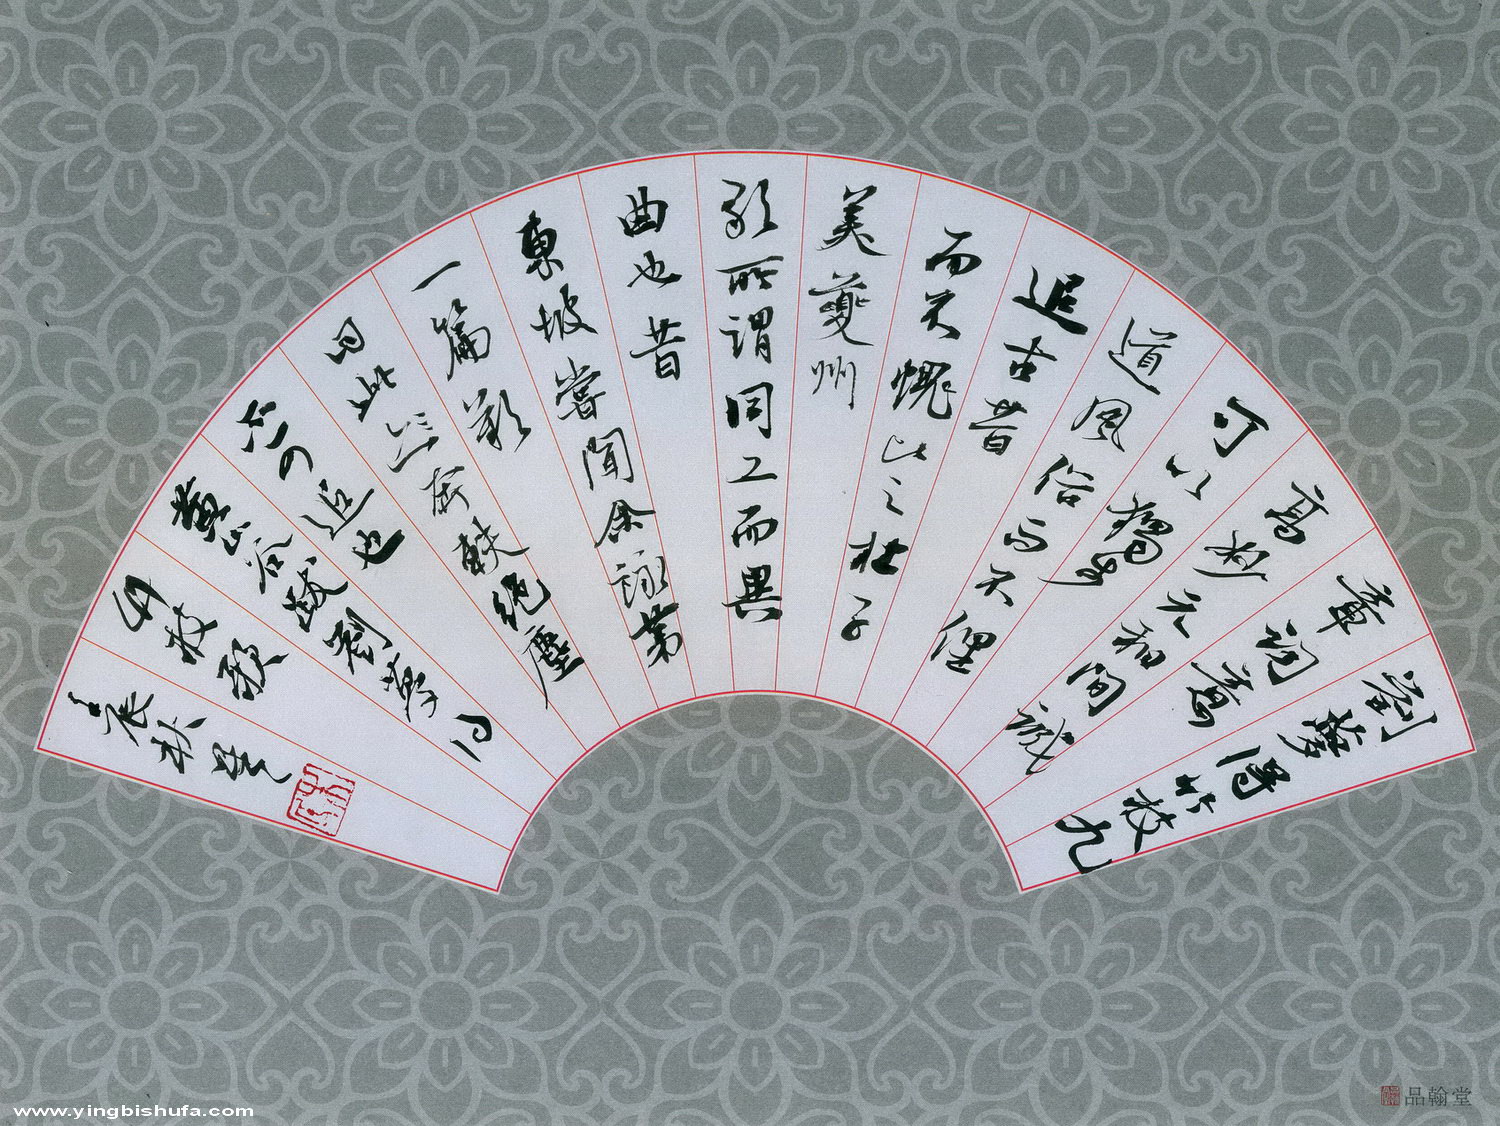 劉夢得竹枝九
章詞意
高妙元和間誠
可以獨步
道風俗而不俚
追古昔
而不愧比之杜子
美夔州
歌所謂同工而異
曲也昔
東坡嘗聞余詠第
一篇歎
曰此奔軼絕塵
不可追也
黃山谷跋劉夢得
竹枝歌
壬辰秋
www.yingbishufa.com
品翰堂